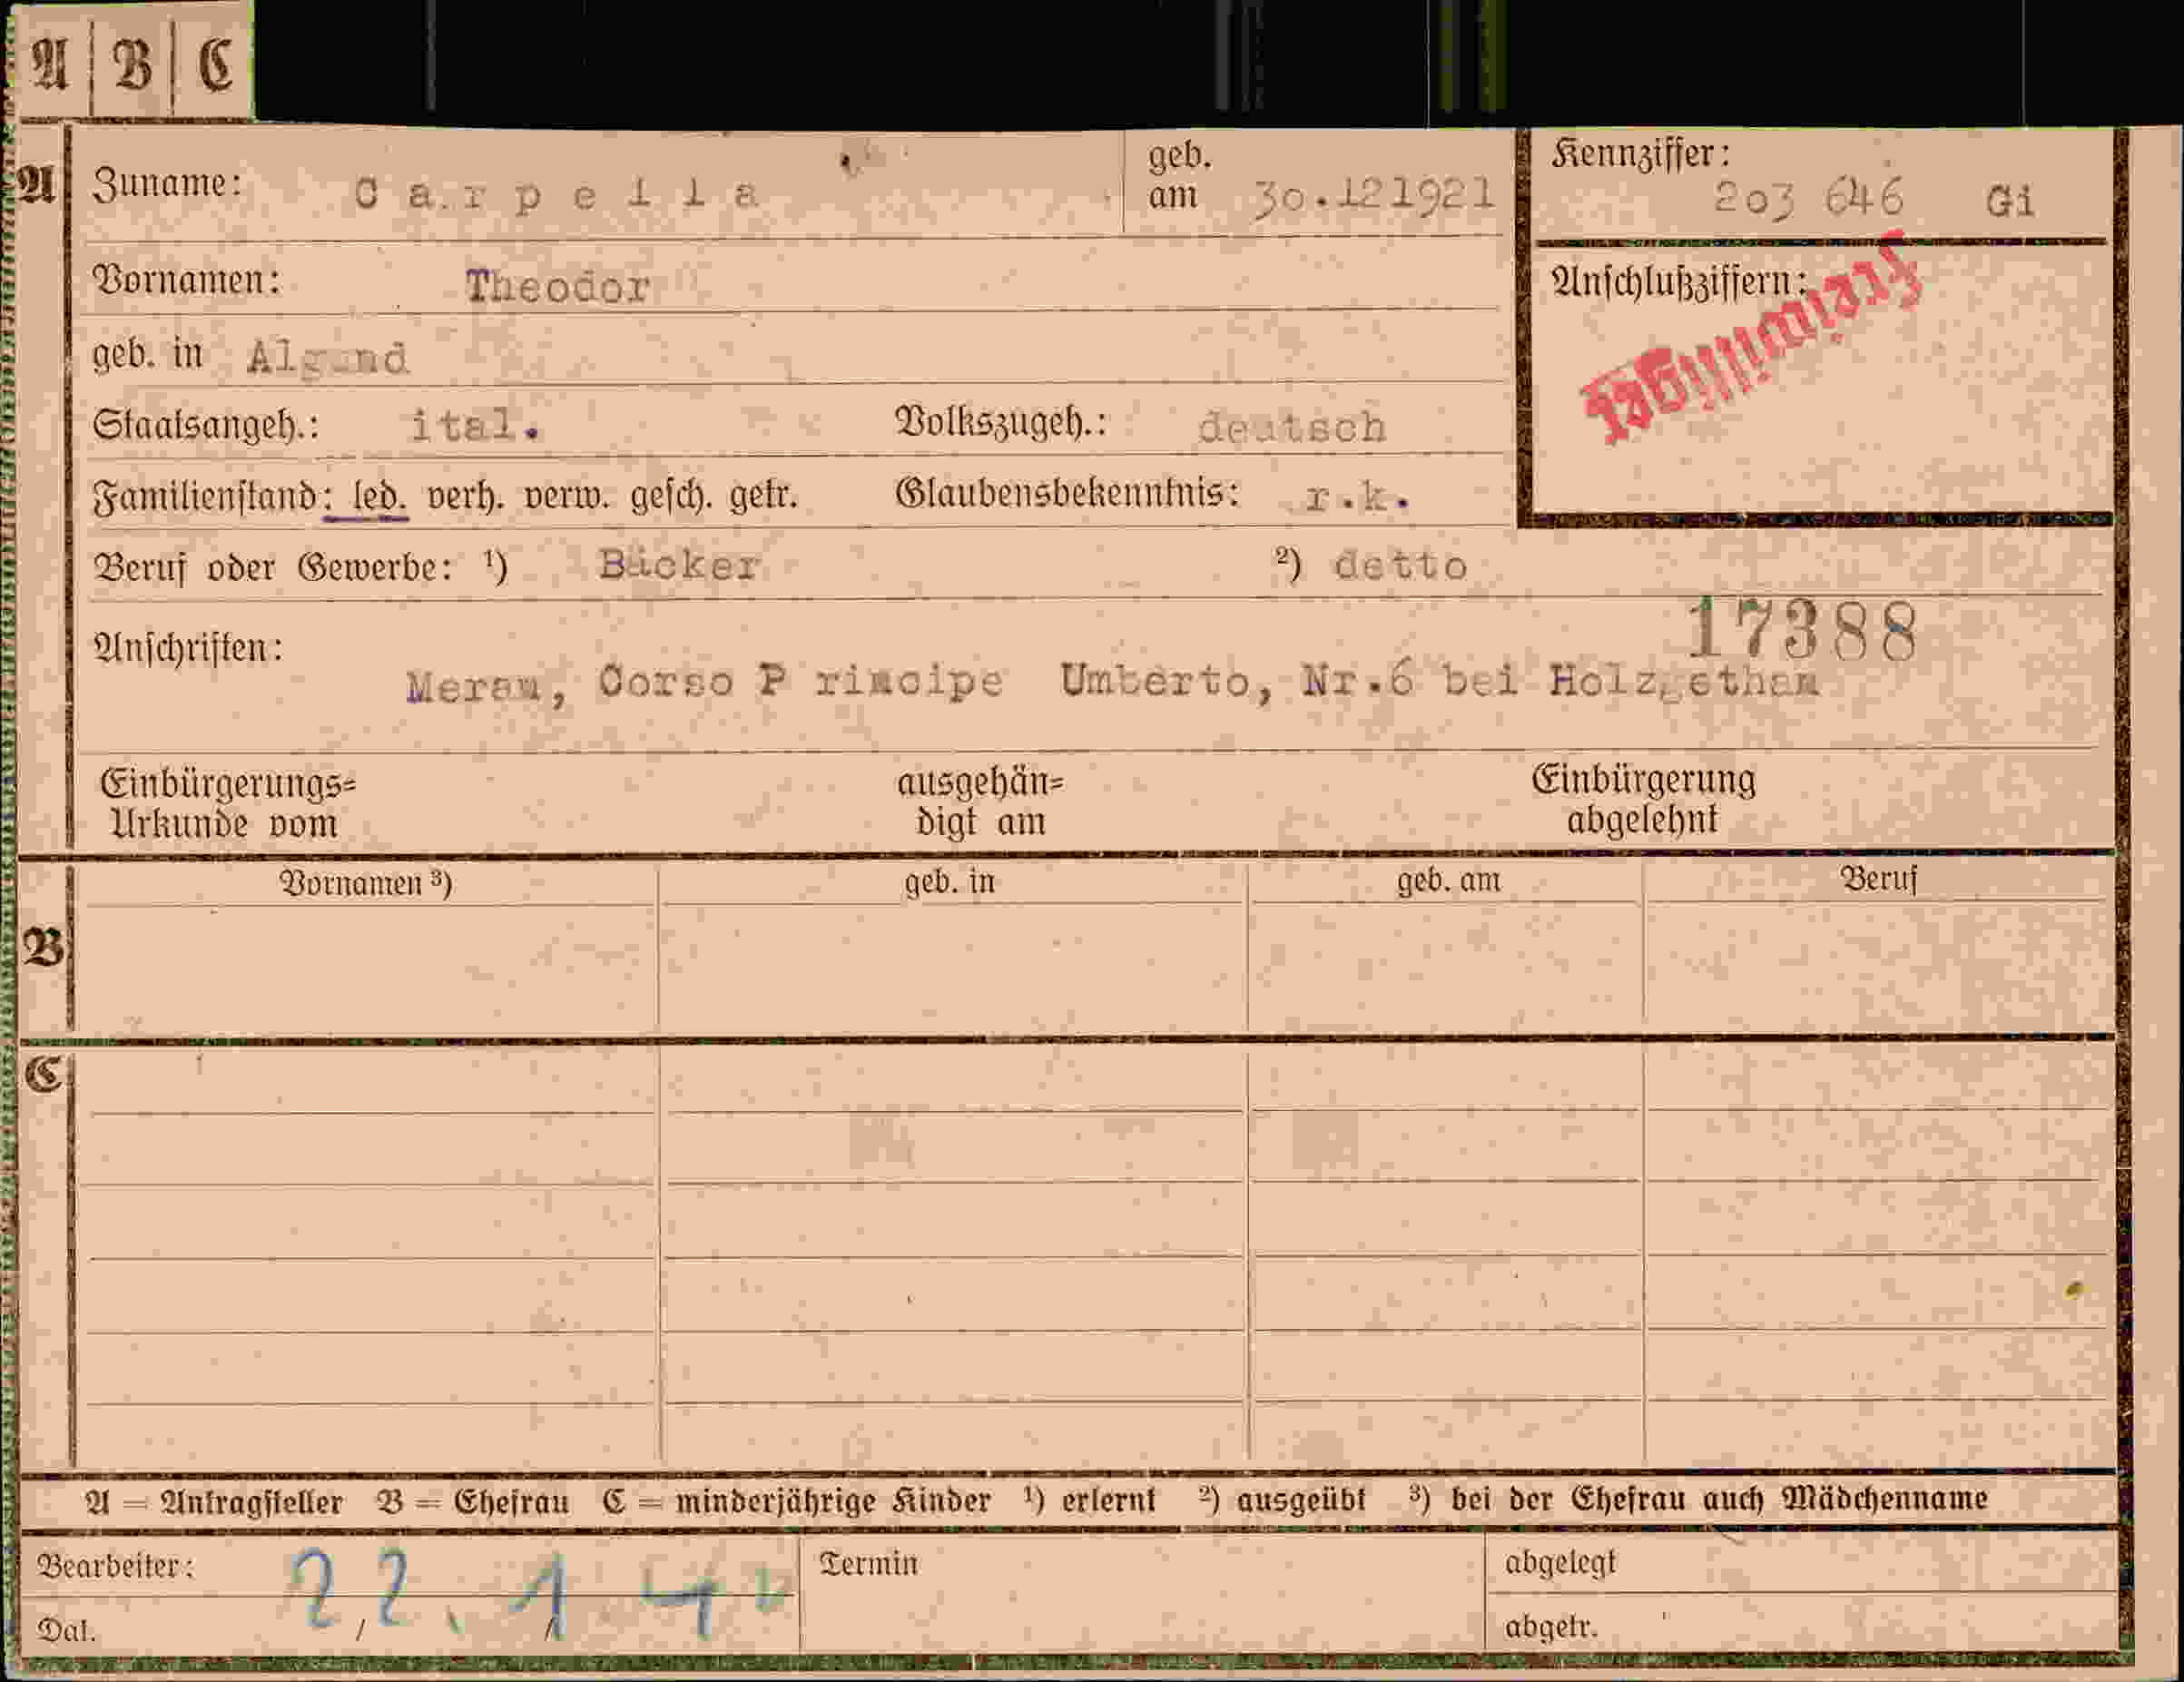 A | B | C
A Zuname: Carpella geb. am 30.12 1921 Kennziffer: 203 646 Gi
Vornamen: Theodor Anschlußziffern:
Freiwilliger
geb. in Algund
Staatsangeh.: ital. Volkszugeh.: deutsch
Familienstand: led. verh. verw. gesch. getr. Glaubensbekenntnis: r.k.
Beruf oder Gewerbe: ¹) Bäcker ²) detto
17388
Anschriften:
Meran, Corso P rincipe Umberto, Nr.6 bei Holzgethan
Einbürgerungs= Urkunde vom ausgehän= digt am Einbürgerung abgelehnt
B Vornamen ³) geb. in geb. am Beruf
C
A = Antragsteller B = Ehefrau C = minderjährige Kinder ¹) erlernt ²) ausgeübt ³) bei der Ehefrau auch Mädchenname
Bearbeiter: Termin abgelegt
22. 1 4
Dat. / / abgetr.